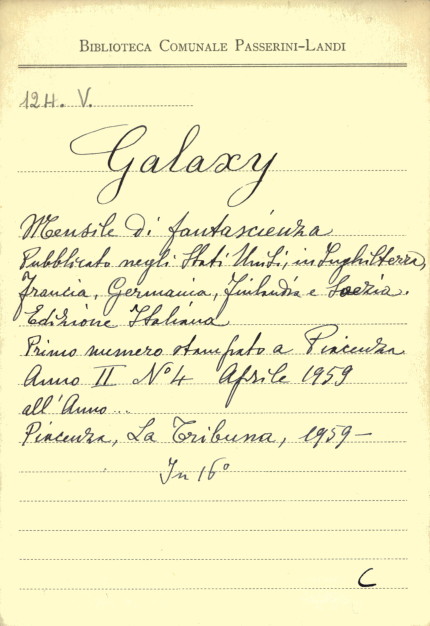 BIBLIOTECA COMUNALE PASSERINI-LANDI
124. V.
Galaxy
Mensile di fantascienza
Pubblicato negli Stati Uniti, in Inghilterra,
Francia, Germania, Finlandia e Svezia.
Edizione Italiana
Primo numero stampato a Piacenza
Anno II N° 4 Aprile 1959
all'Anno...
Piacenza, La Tribuna, 1959 —
In 16°
C